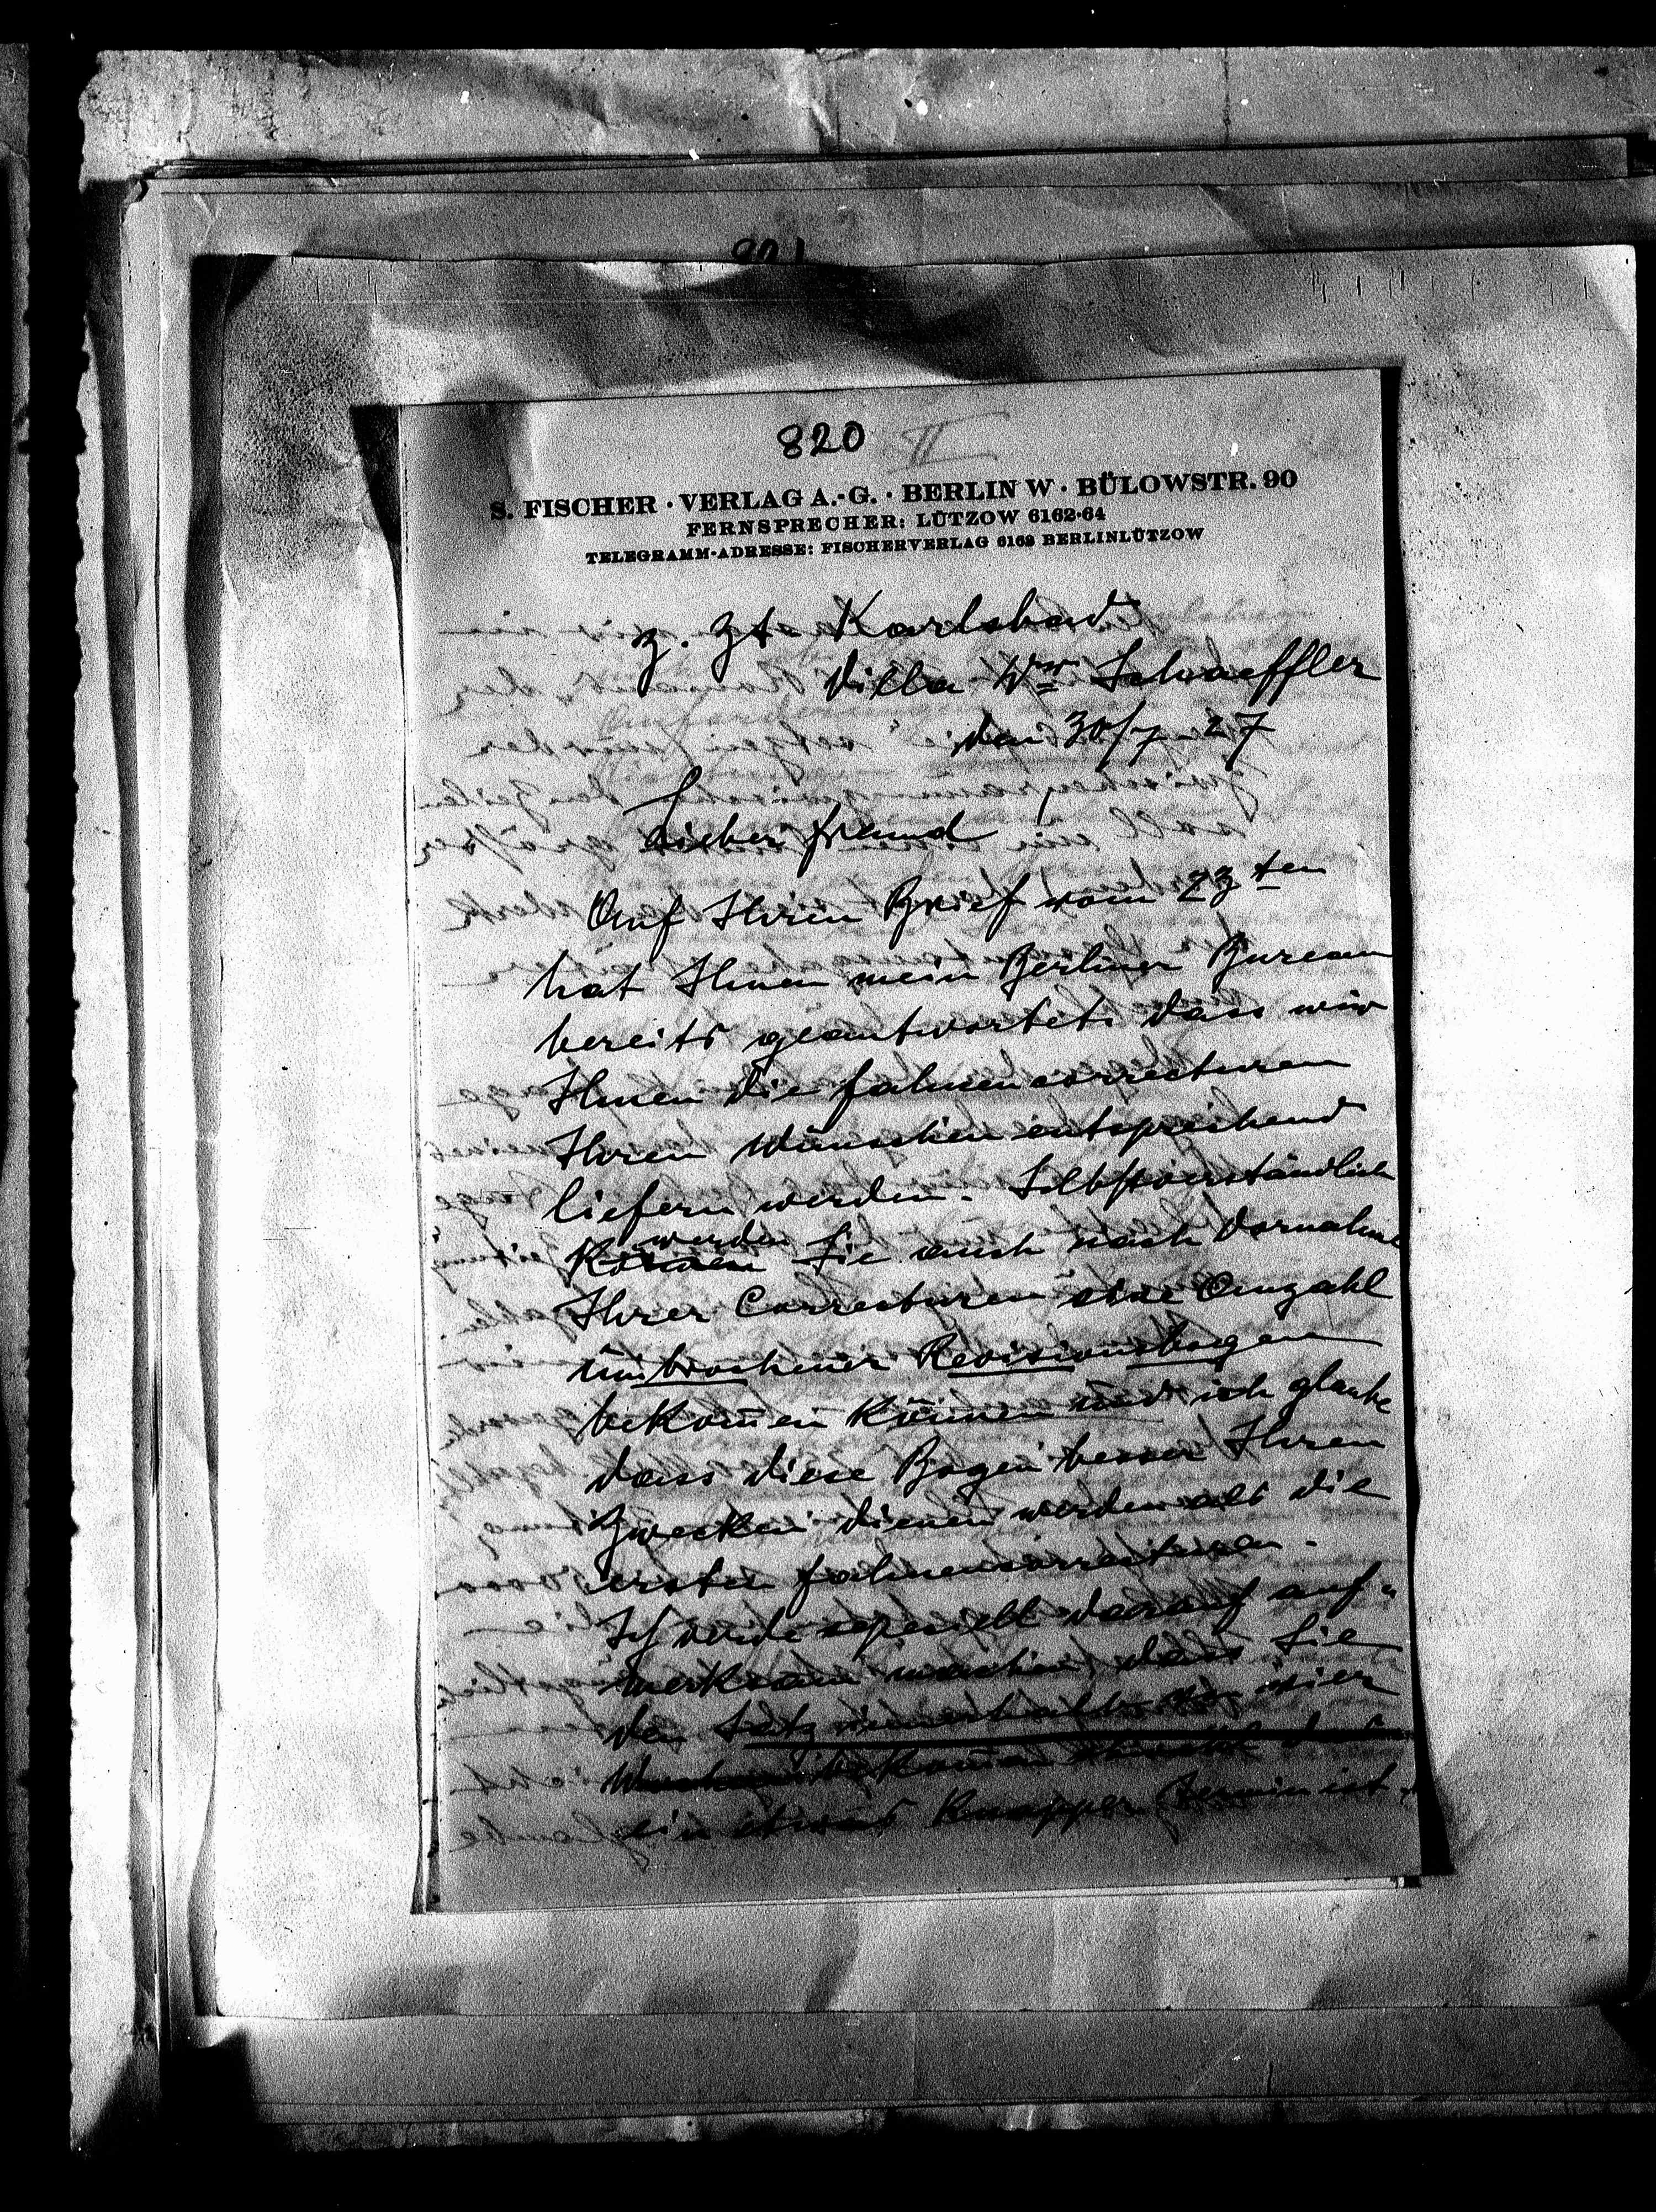 820 II
S. FISCHER · VERLAG A.-G. · BERLIN W · BÜLOWSTR. 90
FERNSPRECHER: LÜTZOW 6162-64
TELEGRAMM-ADRESSE: FISCHERVERLAG 6162 BERLINLÜTZOW
z. Zt Karlsbad
Villa Dr Schaeffler
den 30/7 27
Lieber Freund!
Auf Ihren Brief vom 23ten
hat Ihnen mein Berliner Bureau
bereits geantwortet, dass wir
Ihnen die Fahnencorrecturen
Ihren Wünschen entsprechend
liefern werden. Selbstverständlich
werden Sie auch nach Vornahme
Ihrer Correcturen eine Anzahl
umbrochener Revisionsbogen
bekom̄en können und ich glaube
dass diese Bogen besser Ihren
Zwecken dienen werden als die
ersten Fahnencorrecturen.
Ich werde speciell darauf auf-
merksam machen, dass Sie
den Satz innerhalb vier
Wochen bekom̄en
ein etwas knapper Termin ist.